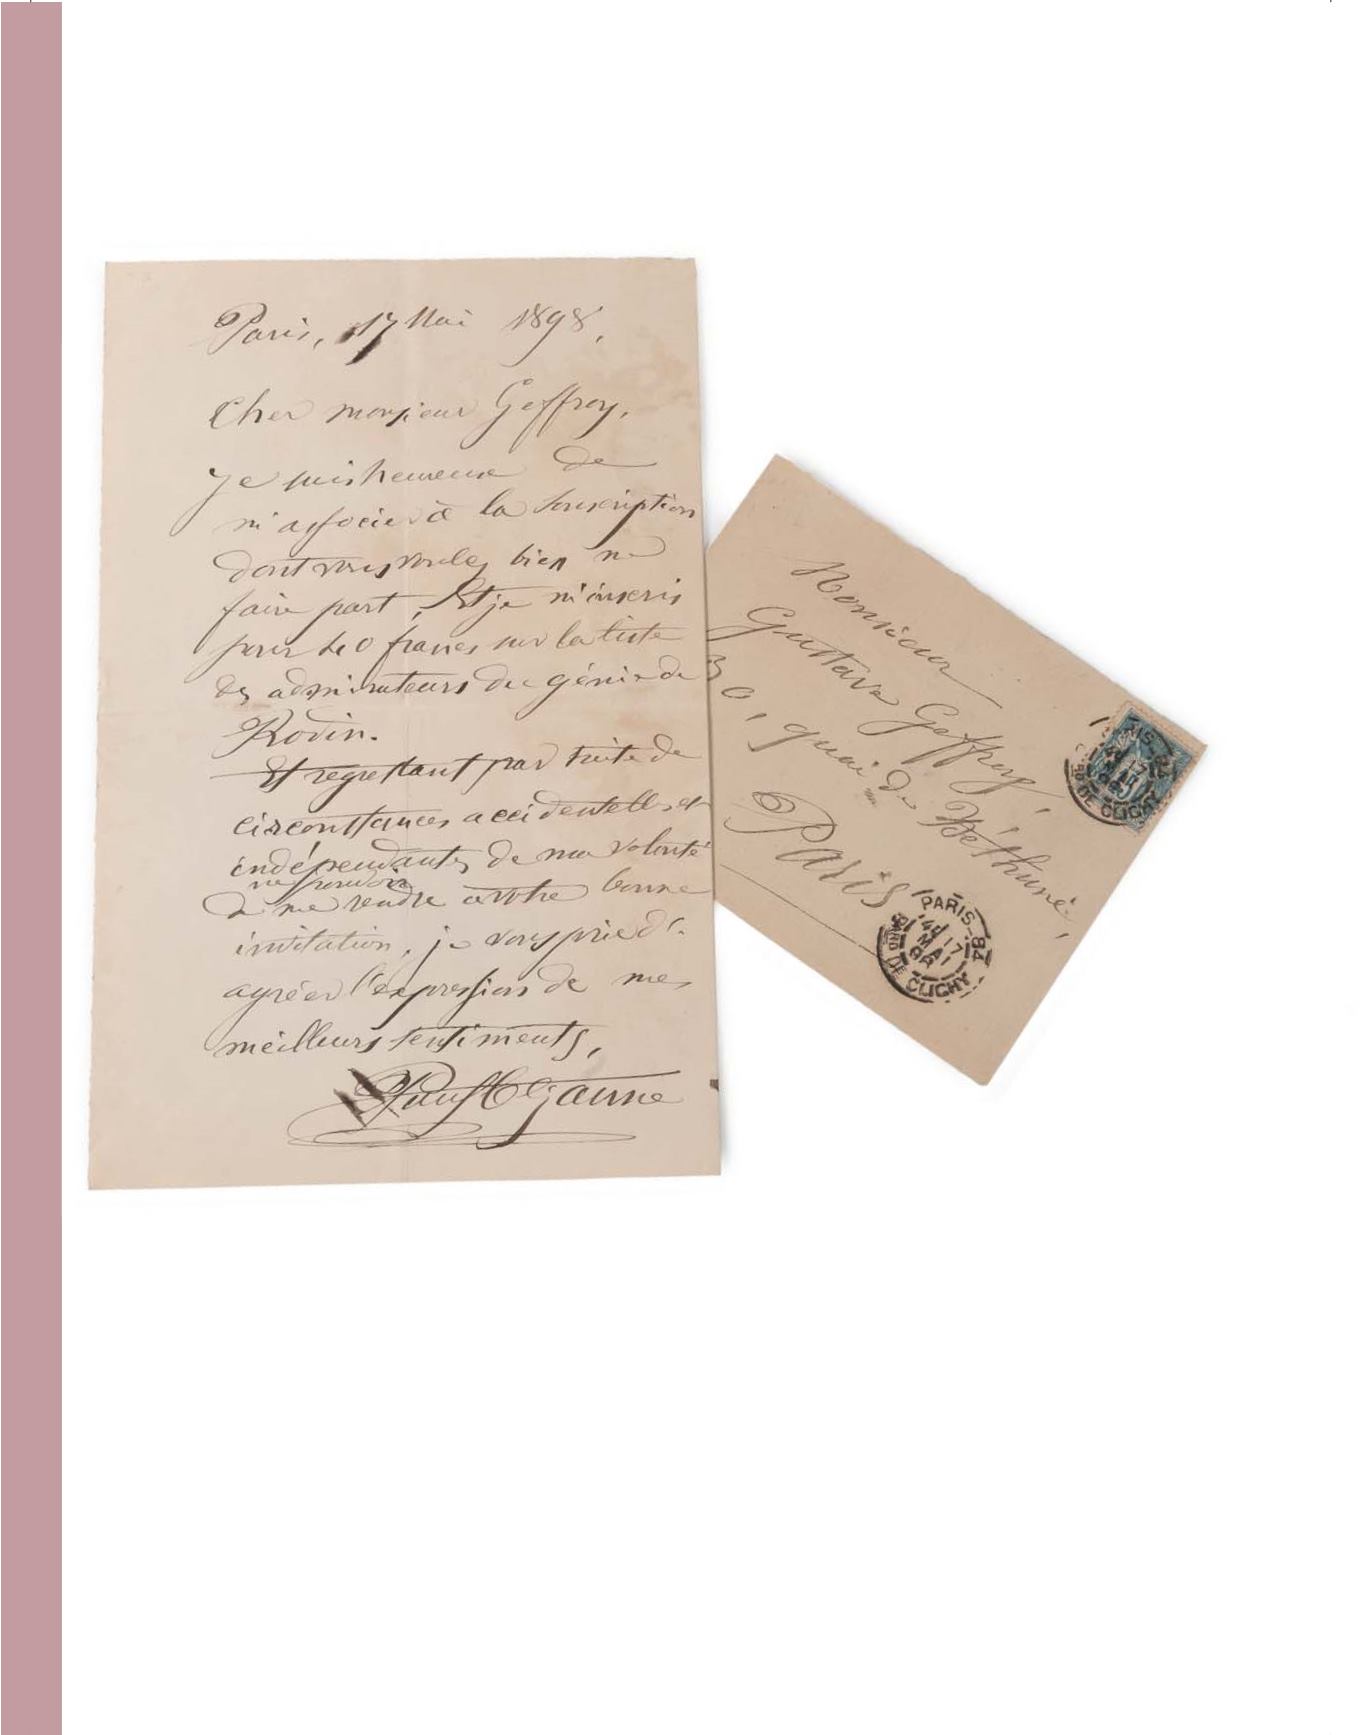 Paris, 17 Mai 1898,
Cher monsieur Geffroy,
je suis heureux de
m'associer à la souscription
dont vous voulez bien me
faire part, Et je m'inscris
pour 40 francs sur la liste
des admirateurs du génie de
Rodin.
Et regrettant par suite de
circonstances accidentelles et
indépendantes de ma volonté
ne pouvoir
de me rendre à votre bonne
invitation, je vous prie d'
agréer l'expression de mes
meilleurs sentiments,
Paul Cezanne
Monsieur
Gustave Geffroy,
30, quai de Béthune,
Paris
PARIS_84
17
MAI
98
BARD DE CLICHY
17
MAI
DE CLICHY